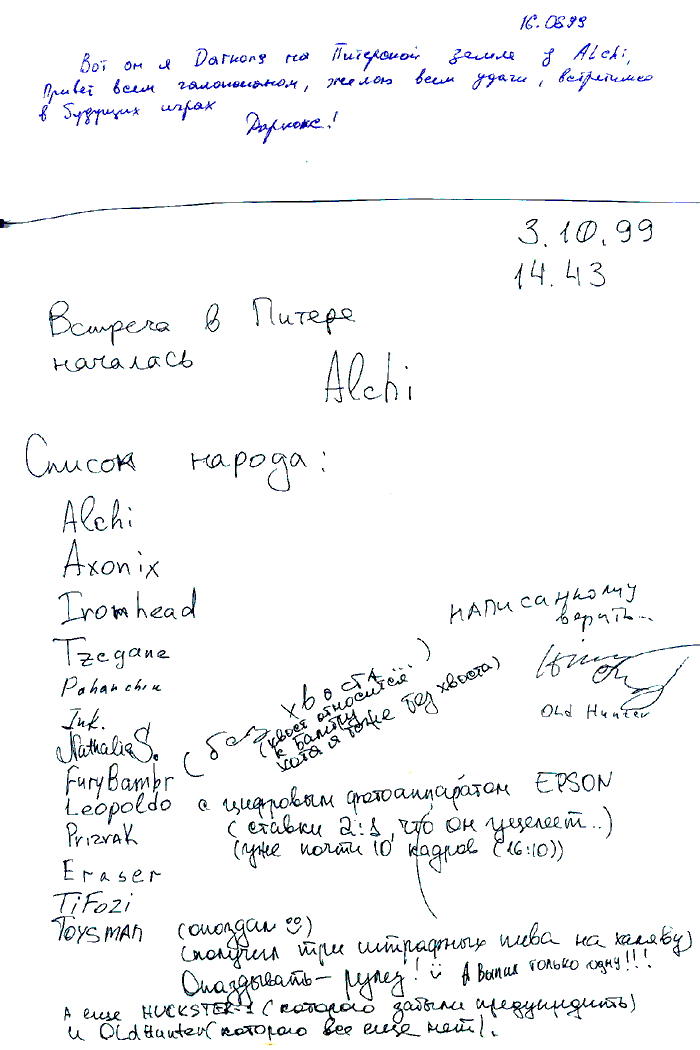 16.0899
Вот он я Darkons на Питерской земле у Alchi,
Привет всем галопомоном, желаю всем удачи, встретимся
в будущих играх
Даркокс!
3.10.99
14.43
Встреча в Питере
началась
Alchi
Список народа:
Alchi
Axonix
Ironhead
Tzegane
Pahanchik
Ink.
Nathalia S.
FuryBambr (без хвоста...)
(хвост относится
к Бамбру
хотя я тоже без хвоста)
написанному
верить...
Old Hunter
Leopoldo с цифровым фотоаппаратом EPSON
(ставки 2:1, что он уцелеет..)
(уже почти 10 кадров (16:10))
Prizrak
Eraser
TiFozi
TOYSMAN (опоздал)
(получил три штрафных пива на халяву)
Опаздывать — рулез! А выпил только одну!!!
А еще HUCKSTER-1 (которого забыли предупредить)
и OldHunter (которого все еще нет).